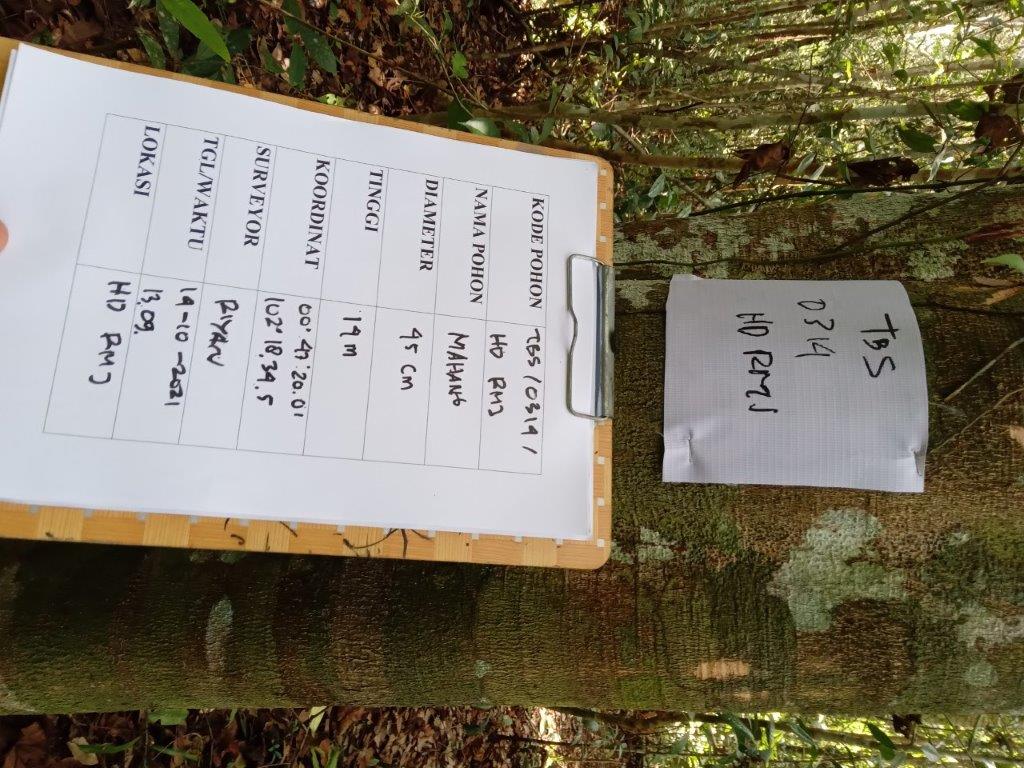 TBS
0314
HD RMJ
KODE POHON TBS / 0314 /
HD RMJ
NAMA POHON MAHANG
DIAMETER 45 cm
TINGGI 14 m
KOORDINAT 00° 47' 20.01
102° 18.34.5
SURVEYOR RIYAN
TGL/WAKTU 14-10-2021
13.09
LOKASI HD RMJ